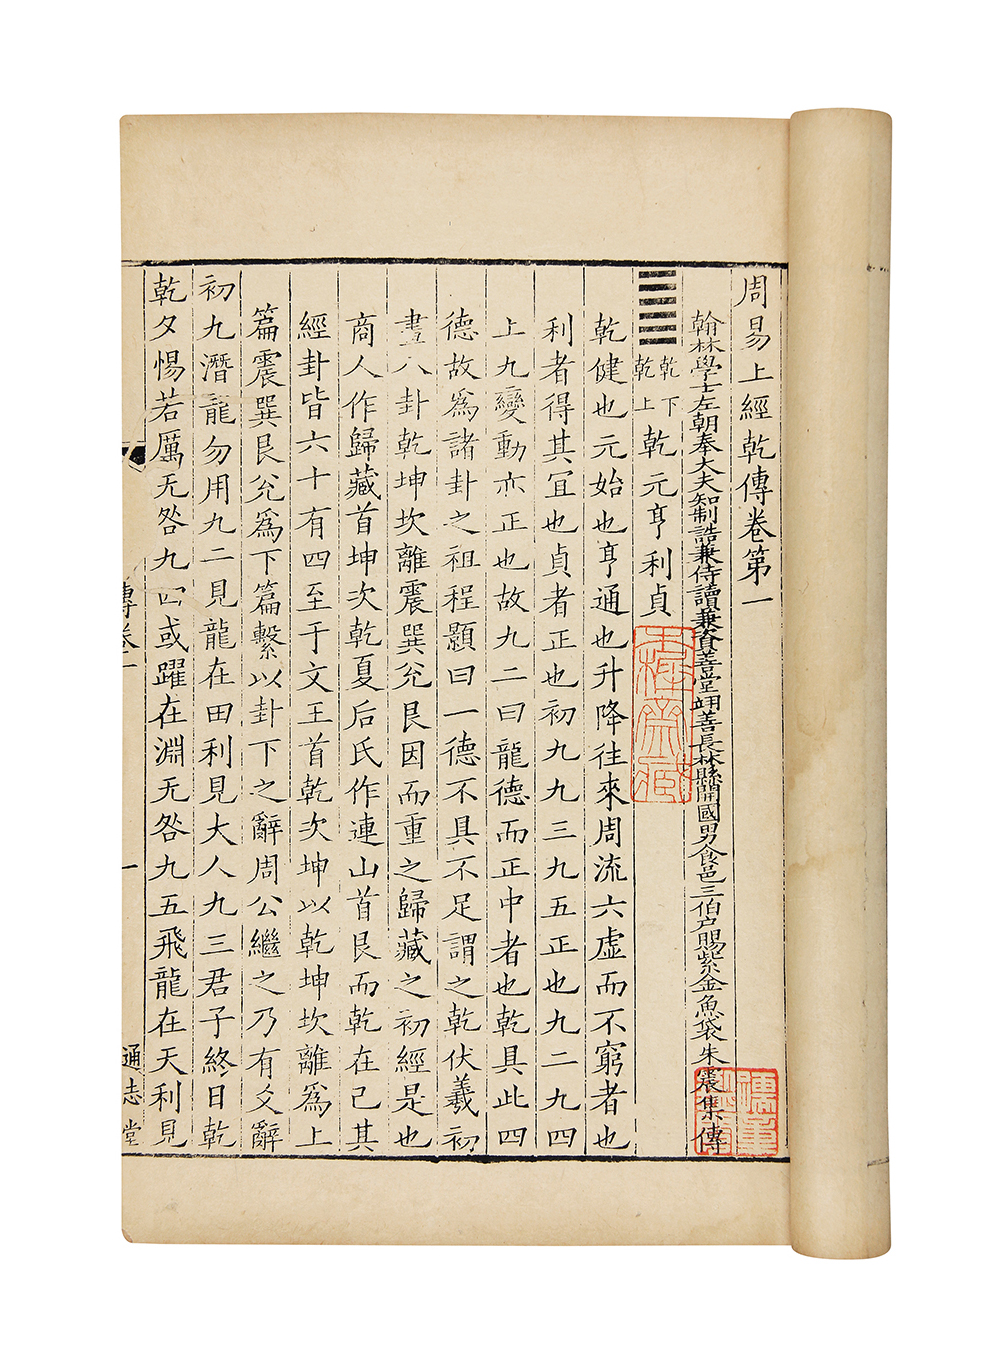 周易上經乾傳卷第一
翰林學士左朝奉大夫知制誥兼侍讀兼資善堂翊善長林縣開國男食邑三伯戶賜紫金魚袋朱震集傳
乾下乾上乾元亨利貞
乾健也元始也亨通也升降往來周流六虛而不窮者也
利者得其宜也貞者正也初九九三九五正也九二九四
上九變動亦正也故九二曰龍德而正中者也乾具此四
德故爲諸卦之祖程顥曰一德不具不足謂之乾伏羲初
畫八卦乾坤坎離震巽兊艮因而重之歸藏之初經是也
商人作歸藏首坤次乾夏后氏作連山首艮而乾在己其
經卦皆六十有四至于文王首乾次坤以乾坤坎離爲上
篇震巽艮兊爲下篇繫以卦下之辭周公繼之乃有爻辭
初九潛龍勿用九二見龍在田利見大人九三君子終日乾
乾夕惕若厲无咎九四或躍在淵无咎九五飛龍在天利見
傳卷一
一
通志堂